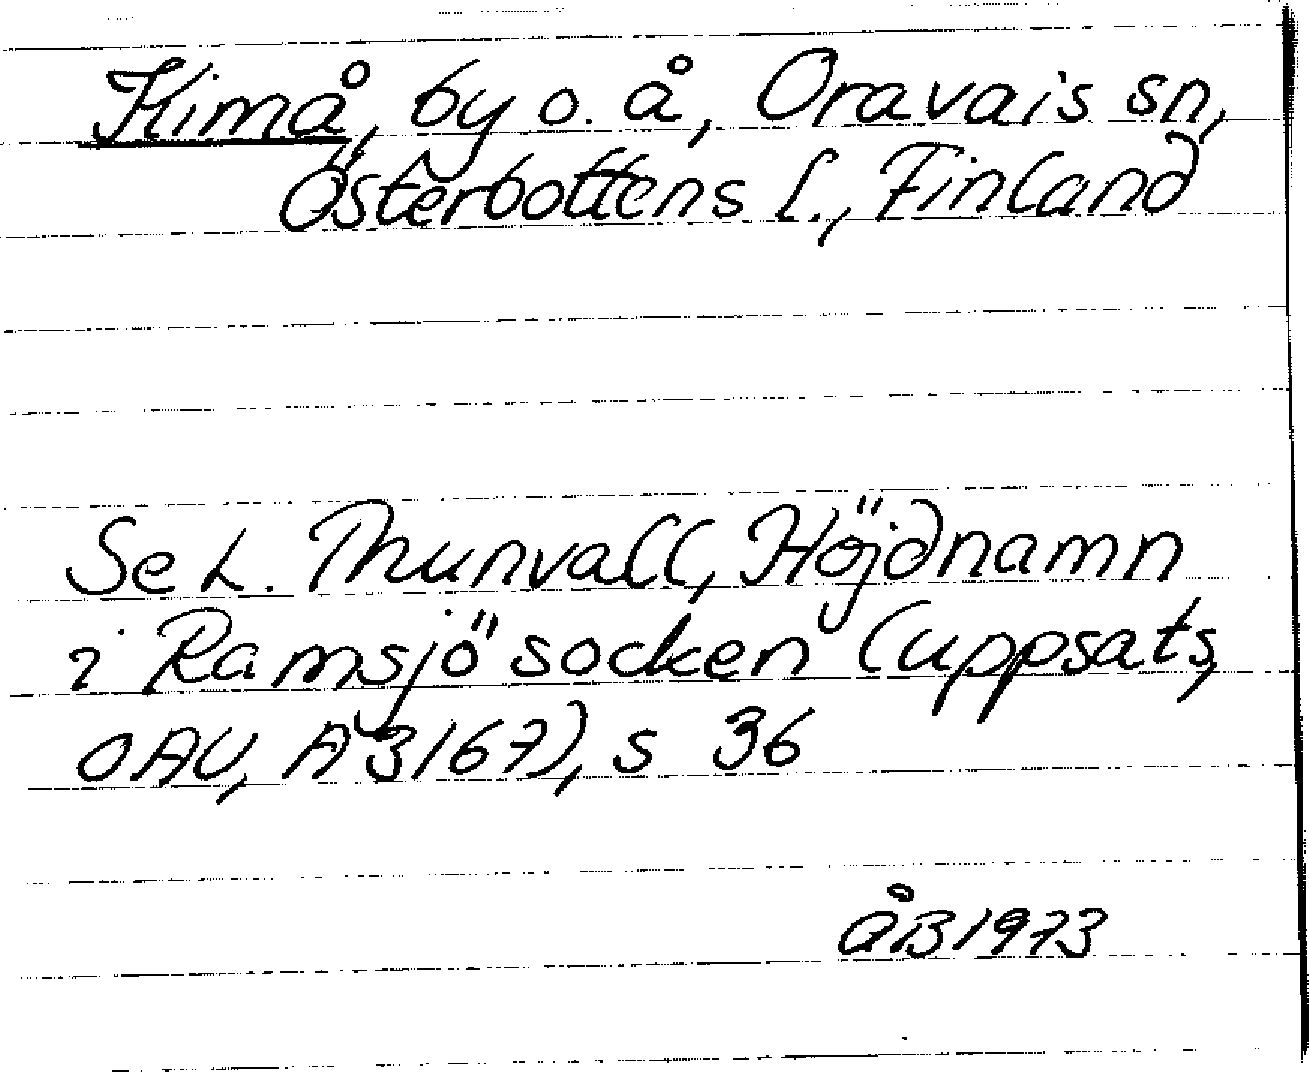 Kimå, by o. å, Oravais sn,
Österbottens l., Finland
Se L. Thunvall, Höjdnamn
i Ramsjö socken (uppsats,
OAU, A 3167), s 36
ÅB 1973